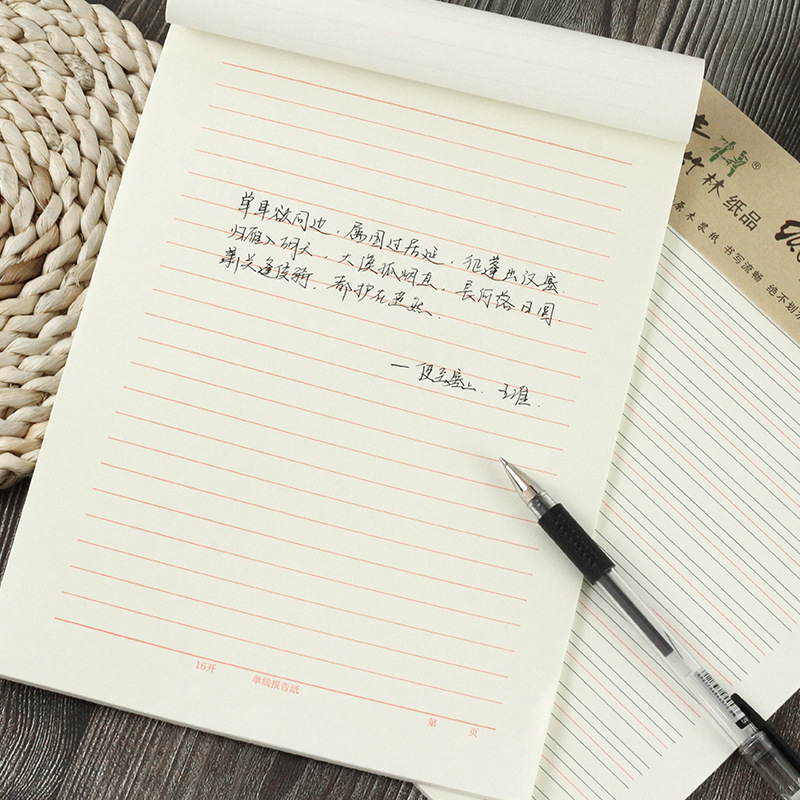 单车欲问边，属国过居延，征蓬出汉塞.
归雁入胡天，大漠孤烟直，長河落日圆.
萧关逢候骑，都护在燕然.
一使至塞上、王维.
16开 单线报告纸
第 页
竹林纸品
®
原木浆纸 书写流畅 绝不划